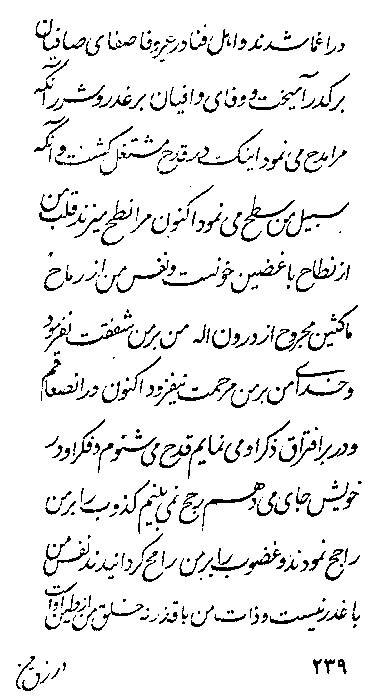 در اغما شدند و اهل فنا در غیر وفا صفای صافیان
بر کدر آمیخت و وفای وافیان بر غدر و شر آنکه
مرا مدح می نمود اینک در قدح مشتغل گشت و آنکه
سبیل من سطح می نمود اکنون مرا نطح میزند قلب من
از نطاح باغضین خونست و نفس من از رماح
ماکثین مجروح از درون اله من بر من شفقت نفرمود
و خدای من بر من مرحمت نیفزود اکنون در انصعاقم
و در بر افتراق ذکر او می نمایم قدح می شنوم و فکر او در
خویش جای می دهم رجح نمی بینم کذوب را بر من
راجح نمودند و غضوب را بر من رامح گردانیدند نفس من
با غدر نیست و ذات من با قذر نه خلق من از طین
۲۳۹
در زق من